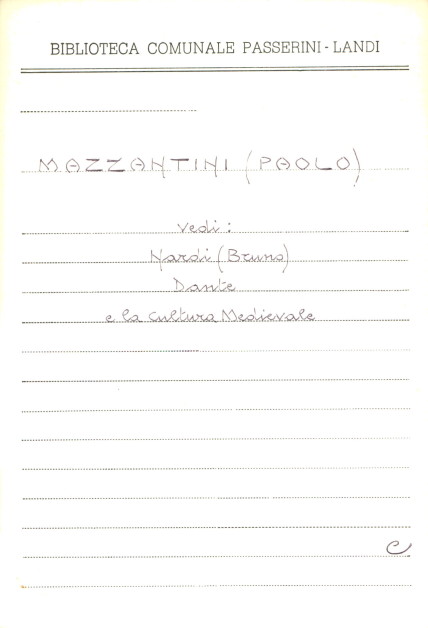 BIBLIOTECA COMUNALE PASSERINI-LANDI
MAZZANTINI (PAOLO)
Vedi:
Nardi (Bruno)
Dante
e la Cultura Medievale
C